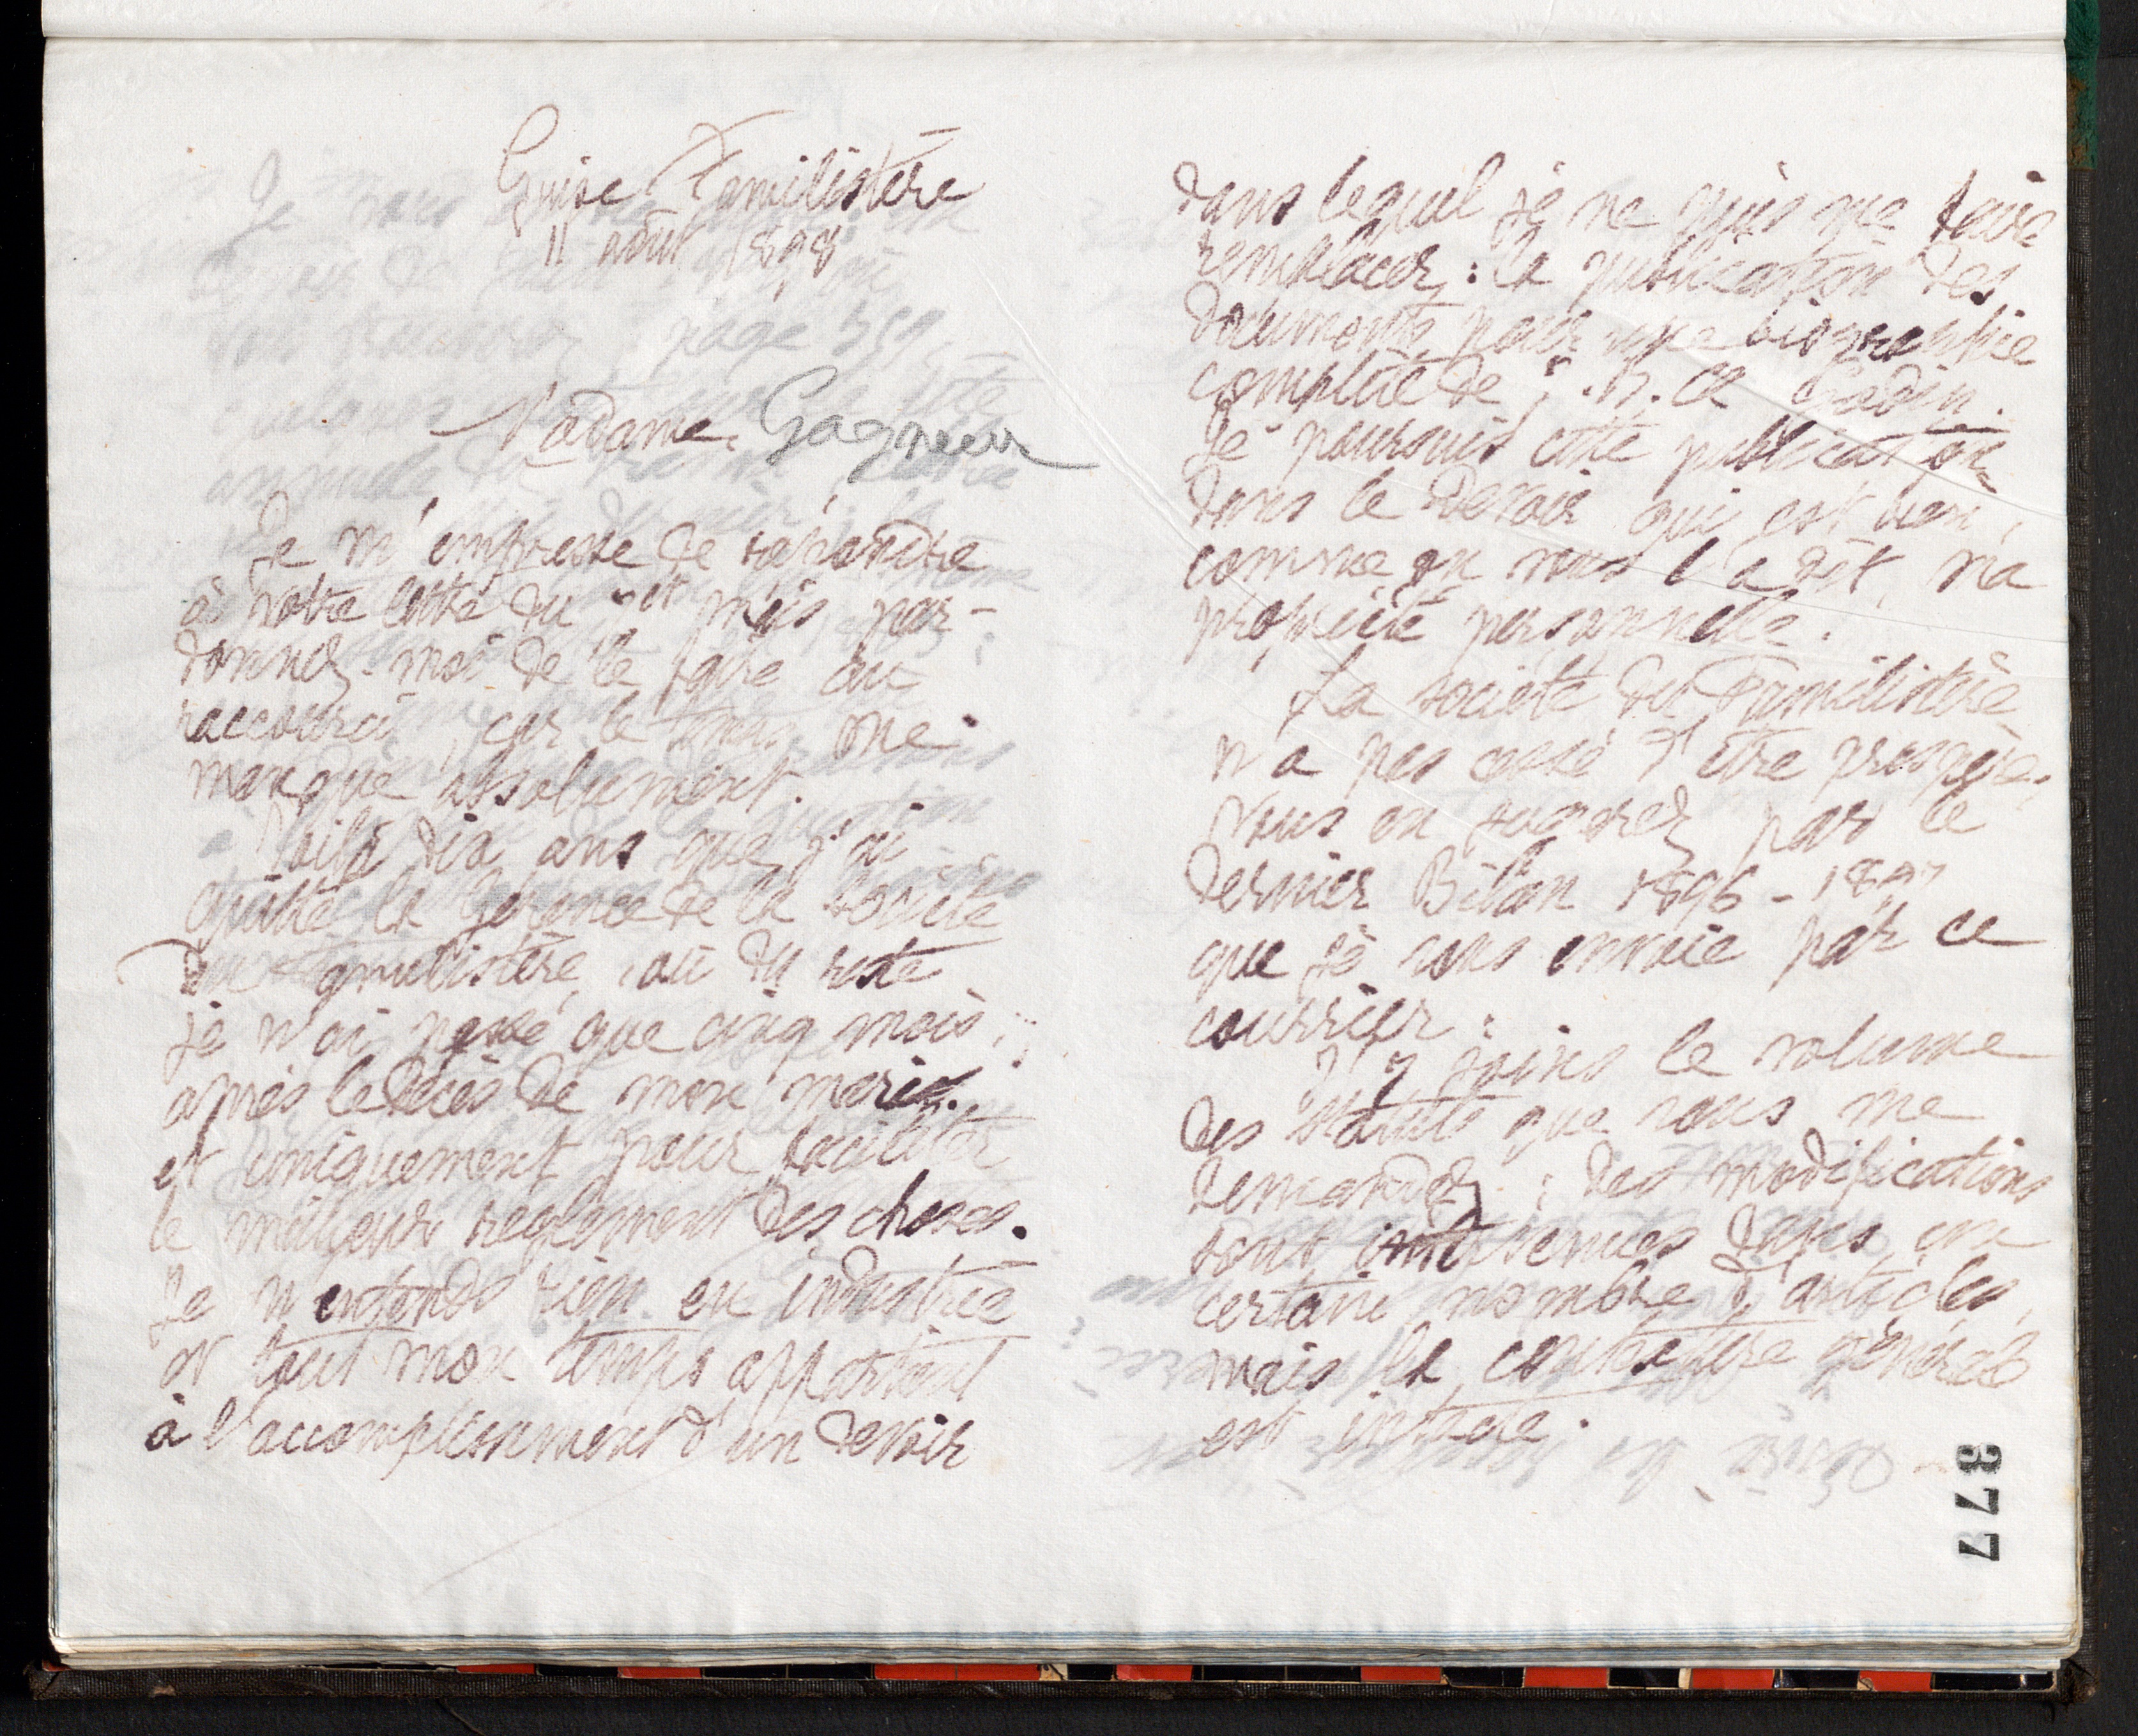 Guise Familistère
11 août 1898
Madame Gagneur
Je m'empresse de répondre
à votre lettre du et mais par-
donnez-moi de le faire en
raccourci, car le temps me
manque absolument.
Voilà dix ans que j'ai
quitté la Gérance de la Société
du Familistère, où du reste
je n'ai passé que cinq mois,
après le décès de mon mari
et uniquement pour faciliter
le meilleur règlement des choses.
Je n'entends rien en industrie
et tout mon temps appartient
à l'accomplissement d'un devoir
dans lequel je ne puis me faire
remplacer : la publication des
documents pour une biographie
complète de J. Bte. A. Godin.
Je poursuis cette publication
dans le Devoir qui est bien,
comme on vous l'a dit, ma
propriété personnelle.
La société du Familistère
n'a pas cessé d'être prospère.
Vous en jugerez par le
dernier Bilan 1896-1897
que je vous envoie par ce
courrier :
J'y joins le volume
des statuts que vous me
demandez : des modifications
sont intervenues dans un
certain nombre d'articles,
mais la contexture générale
est intacte.
377